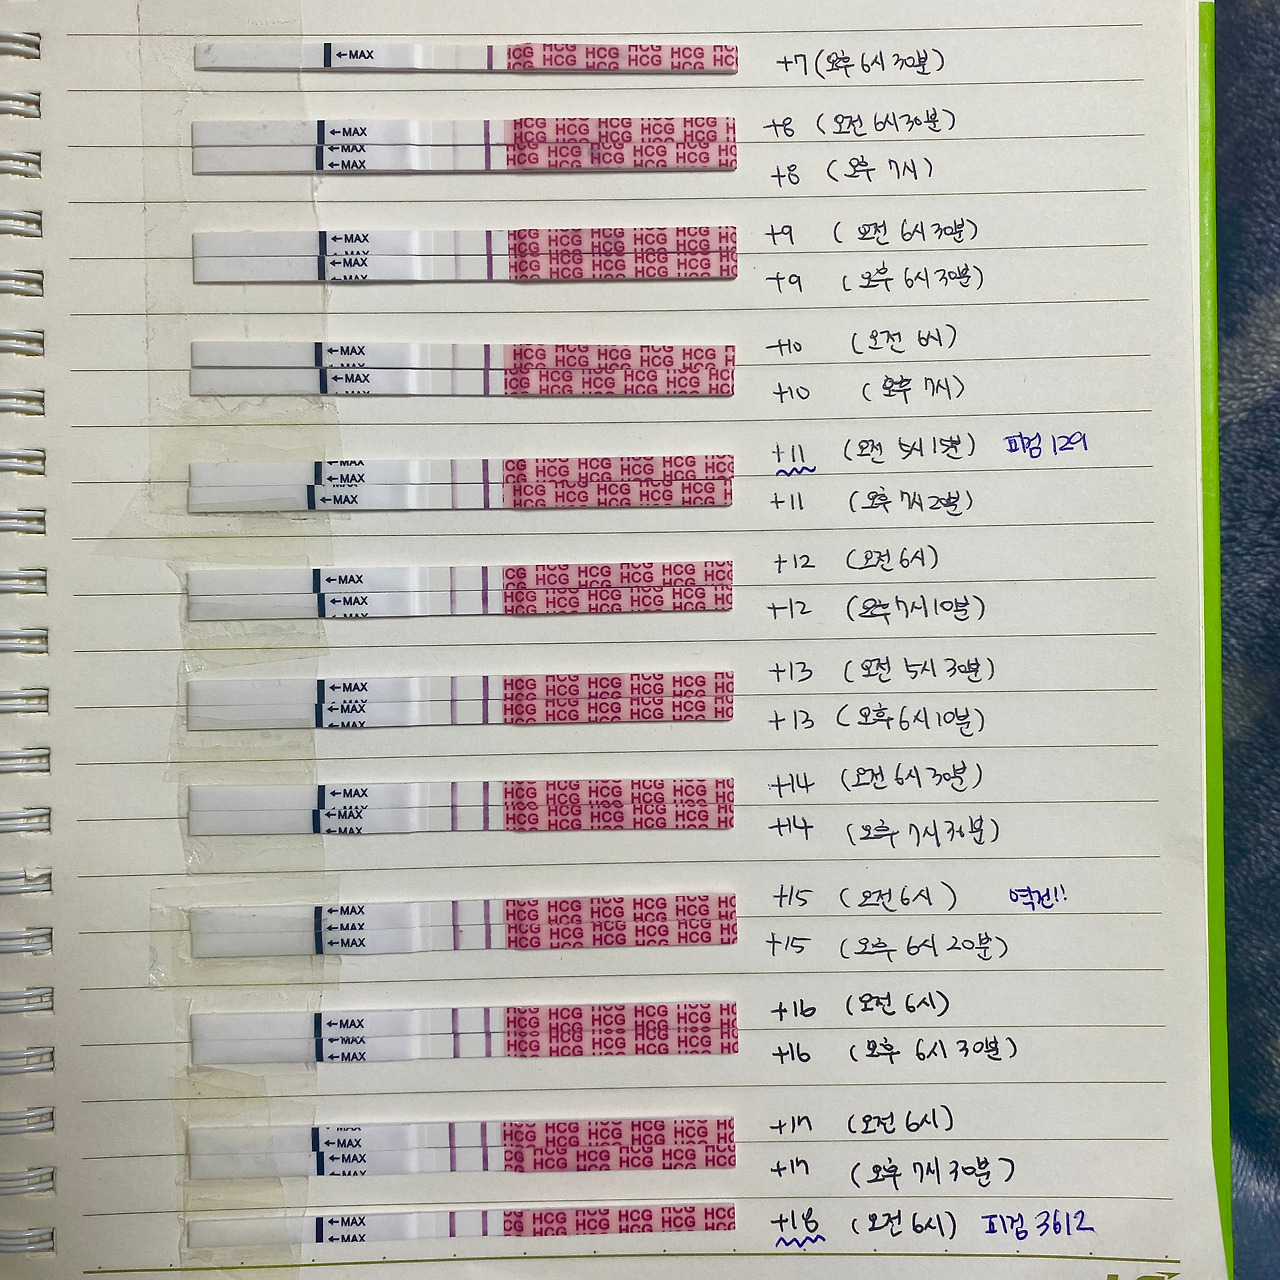 ←MAX HCG HCG HCG HCG HCG HCG +7 (오후 6시 30분)
←MAX HCG HCG HCG HCG HCG +8 (오전 6시 30분)
←MAX HCG HCG HCG HCG HCG +8 (오후 7시)
←MAX HCG HCG HCG HCG HCG +9 (오전 6시 30분)
←MAX HCG HCG HCG HCG HCG +9 (오후 6시 30분)
←MAX HCG HCG HCG HCG HCG +10 (오전 6시)
←MAX HCG HCG HCG HCG HCG +10 (오후 7시)
←MAX HCG HCG HCG HCG HCG +11 (오전 5시 15분) 피검 129
←MAX HCG HCG HCG HCG HCG +11 (오후 7시 20분)
←MAX HCG HCG HCG HCG HCG +12 (오전 6시)
←MAX HCG HCG HCG HCG HCG +12 (오후 7시 10분)
←MAX HCG HCG HCG HCG HCG +13 (오전 5시 30분)
←MAX HCG HCG HCG HCG HCG +13 (오후 6시 10분)
←MAX HCG HCG HCG HCG HCG +14 (오전 6시 30분)
←MAX HCG HCG HCG HCG HCG +14 (오후 7시 30분)
←MAX HCG HCG HCG HCG HCG +15 (오전 6시) 역전!!
←MAX HCG HCG HCG HCG HCG +15 (오후 6시 20분)
←MAX HCG HCG HCG HCG HCG +16 (오전 6시)
←MAX HCG HCG HCG HCG HCG +16 (오후 6시 30분)
←MAX HCG HCG HCG HCG HCG +17 (오전 6시)
←MAX HCG HCG HCG HCG HCG +17 (오후 7시 30분)
←MAX HCG HCG HCG HCG HCG +18 (오전 6시) 피검 3612